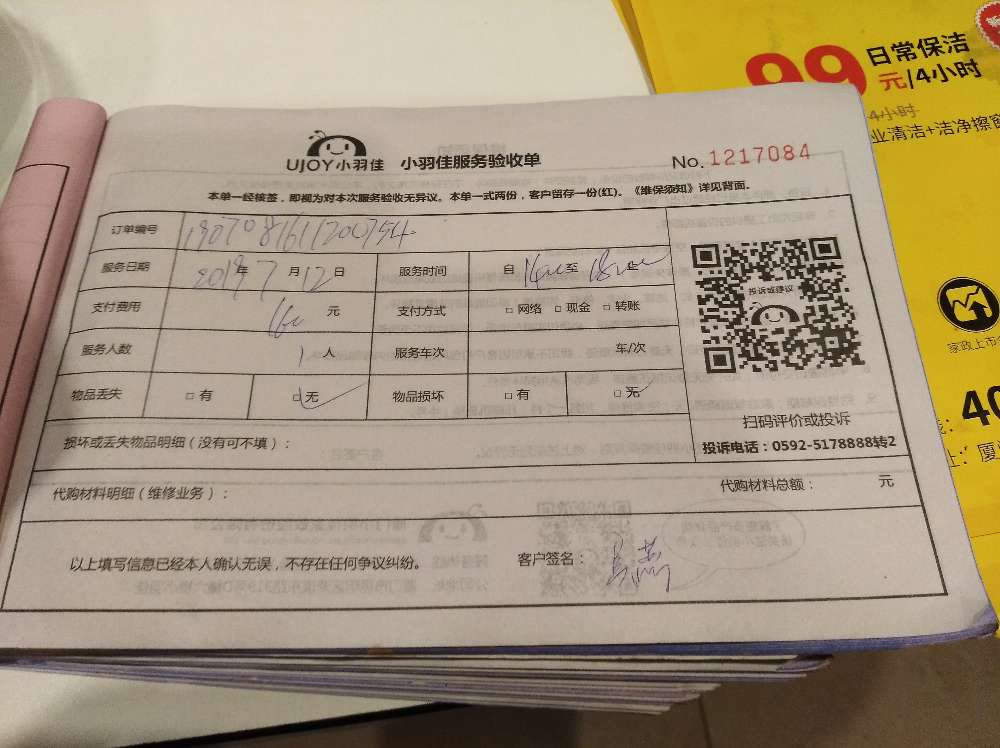 99 日常保洁
元/4小时
4小时
业清洁+洁净擦窗
UJOY小羽佳 小羽佳服务验收单 No. 1217084
本单一经核签,即视为对本次服务验收无异议。本单一式两份,客户留存一份(红)。《维保须知》详见背面。
订单编号
服务日期 2019年7月12日 服务时间 自 至
支付费用 元 支付方式 □ 网络 □ 现金 □ 转账
服务人数 1 人 服务车次 车/次
物品丢失 □ 有 □ 无 物品损坏 □ 有 □ 无
投诉或建议
扫码评价或投诉
投诉电话:0592-5178888转2
损坏或丢失物品明细(没有可不填):
代购材料明细(维修业务): 代购材料总额: 元
以上填写信息已经本人确认无误,不存在任何争议纠纷。 客户签名:
家政上市
: 40